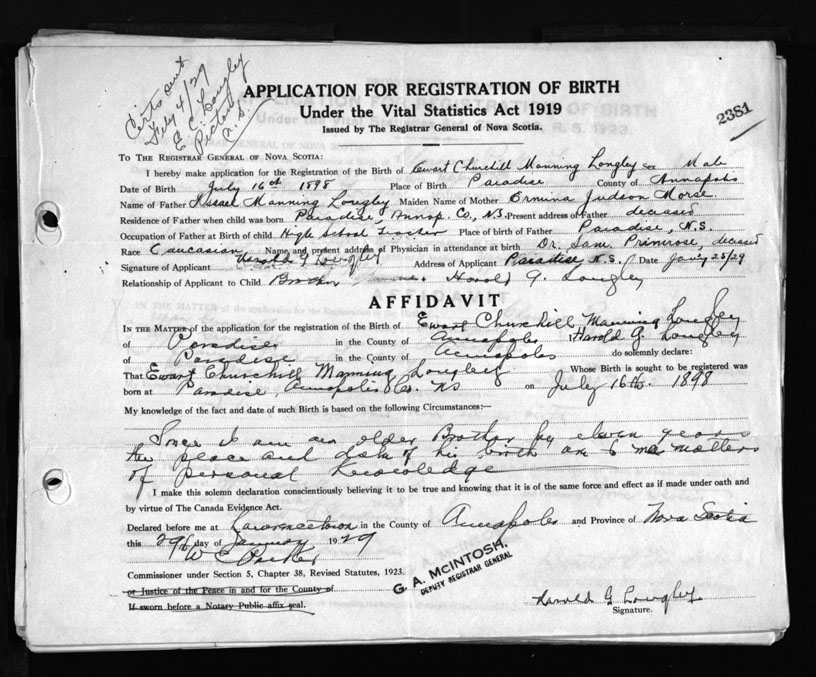 Certs sent
Feby 4/29
E. C. Longley
Pictou
N. S.
2381
APPLICATION FOR REGISTRATION OF BIRTH
Under the Vital Statistics Act 1919
Issued by The Registrar General of Nova Scotia.
TO THE REGISTRAR GENERAL OF NOVA SCOTIA:
I hereby make application for the Registration of the Birth of Ewart Churchill Manning Longley Sex Male
Date of Birth July 16th 1898 Place of Birth Paradise County of Annapolis
Name of Father Israel Manning Longley Maiden Name of Mother Ermina Judson Morse
Residence of Father when child was born Paradise, Annap. Co., N.S. Present address of Father deceased
Occupation of Father at Birth of child High School Teacher Place of birth of Father Paradise, N.S.
Race Caucasian Name, and present address of Physician in attendance at birth Dr. Sam. Primrose, deceased
Signature of Applicant Harold G Longley Address of Applicant Paradise N.S. Date Jan'y 25/29
Relationship of Applicant to Child Brother Harold G. Longley
AFFIDAVIT
IN THE MATTER of the application for the registration of the Birth of Ewart Churchill Manning Longley
of Paradise in the County of Annapolis, Harold G. Longley
of Paradise in the County of Annapolis do solemnly declare:
That Ewart Churchill Manning Longley Whose Birth is sought to be registered was
born at Paradise, Annapolis Co. NS on July 16th. 1898
My knowledge of the fact and date of such Birth is based on the following Circumstances:—
Since I am an older Brother by eleven years
the place and date of his birth are to me matters
of personal knowledge
I make this solemn declaration conscientiously believing it to be true and knowing that it is of the same force and effect as if made under oath and
by virtue of The Canada Evidence Act.
Declared before me at Lawrencetown in the County of Annapolis and Province of Nova Scotia
this 29th day of January 1929
W C Parker
Commissioner under Section 5, Chapter 38, Revised Statutes, 1923.
or Justice of the Peace in and for the County of
If sworn before a Notary Public affix seal.
G. A. McINTOSH,
DEPUTY REGISTRAR GENERAL
Harold G Longley
Signature.